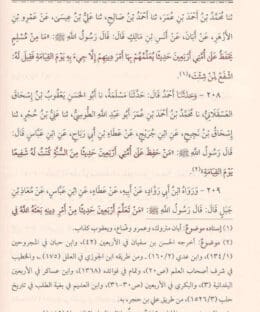 ثنا محمد بن أحمد بن عمر، ثنا أحمد بن صالح، ثنا علي بن عيسى، عن عمرو بن
الأزهر، عن أبان، عن أنس بن مالك قال: قال رسول الله ﷺ: «ما من مسلم
يحفظ على أمتي أربعين حديثا يعلمهم بها أمر دينهم إلا جيء به يوم القيامة فقيل له:
اشفع لمن شئت»(١).
٢٠٨ - وحدثنا أحمد قال: حدثنا مسلمة، نا أبو الحسن يعقوب بن إسحاق
العسقلاني، نا محمد بن أحمد بن عمر أبو عبد الله الطوسي، ثنا علي بن حجر، ثنا
إسحاق بن نجيح، عن ابن جريج، عن عطاء بن أبي رباح، عن ابن عباس قال:
قال رسول الله ﷺ: «من حفظ على أمتي أربعين حديثا من السنة كنت له شفيعا
يوم القيامة»(٢).
٢٠٩ - ورواه ابن أبي رواد، عن أبيه، عن عطاء، عن ابن عباس، عن معاذ بن
جبل قال: قال رسول الله ﷺ: «من تعلم أربعين حديثا من أمر دينه بعثه الله في
(١) إسناده موضوع: أبان متروك، وعمرو وضاع، ويعقوب كذاب.
(٢) موضوع: أخرجه الحسن بن سفيان في الأربعين (٤٢)، وابن حبان في المجروحين
(١/١٣٤)، وابن عدي (١/٣٣٠)، ومن طريقه ابن الجوزي في العلل، والخطيب
في شرف أصحاب العلم (ص٢٠)، وتمام في فوائده (١٣٦٨)، وابن عساكر في الأربعين
البلدانية، والبكري في الأربعين (ص)، وابن العديم في بغية الطلب في تاريخ
حلب، من طريق علي بن حجر به.